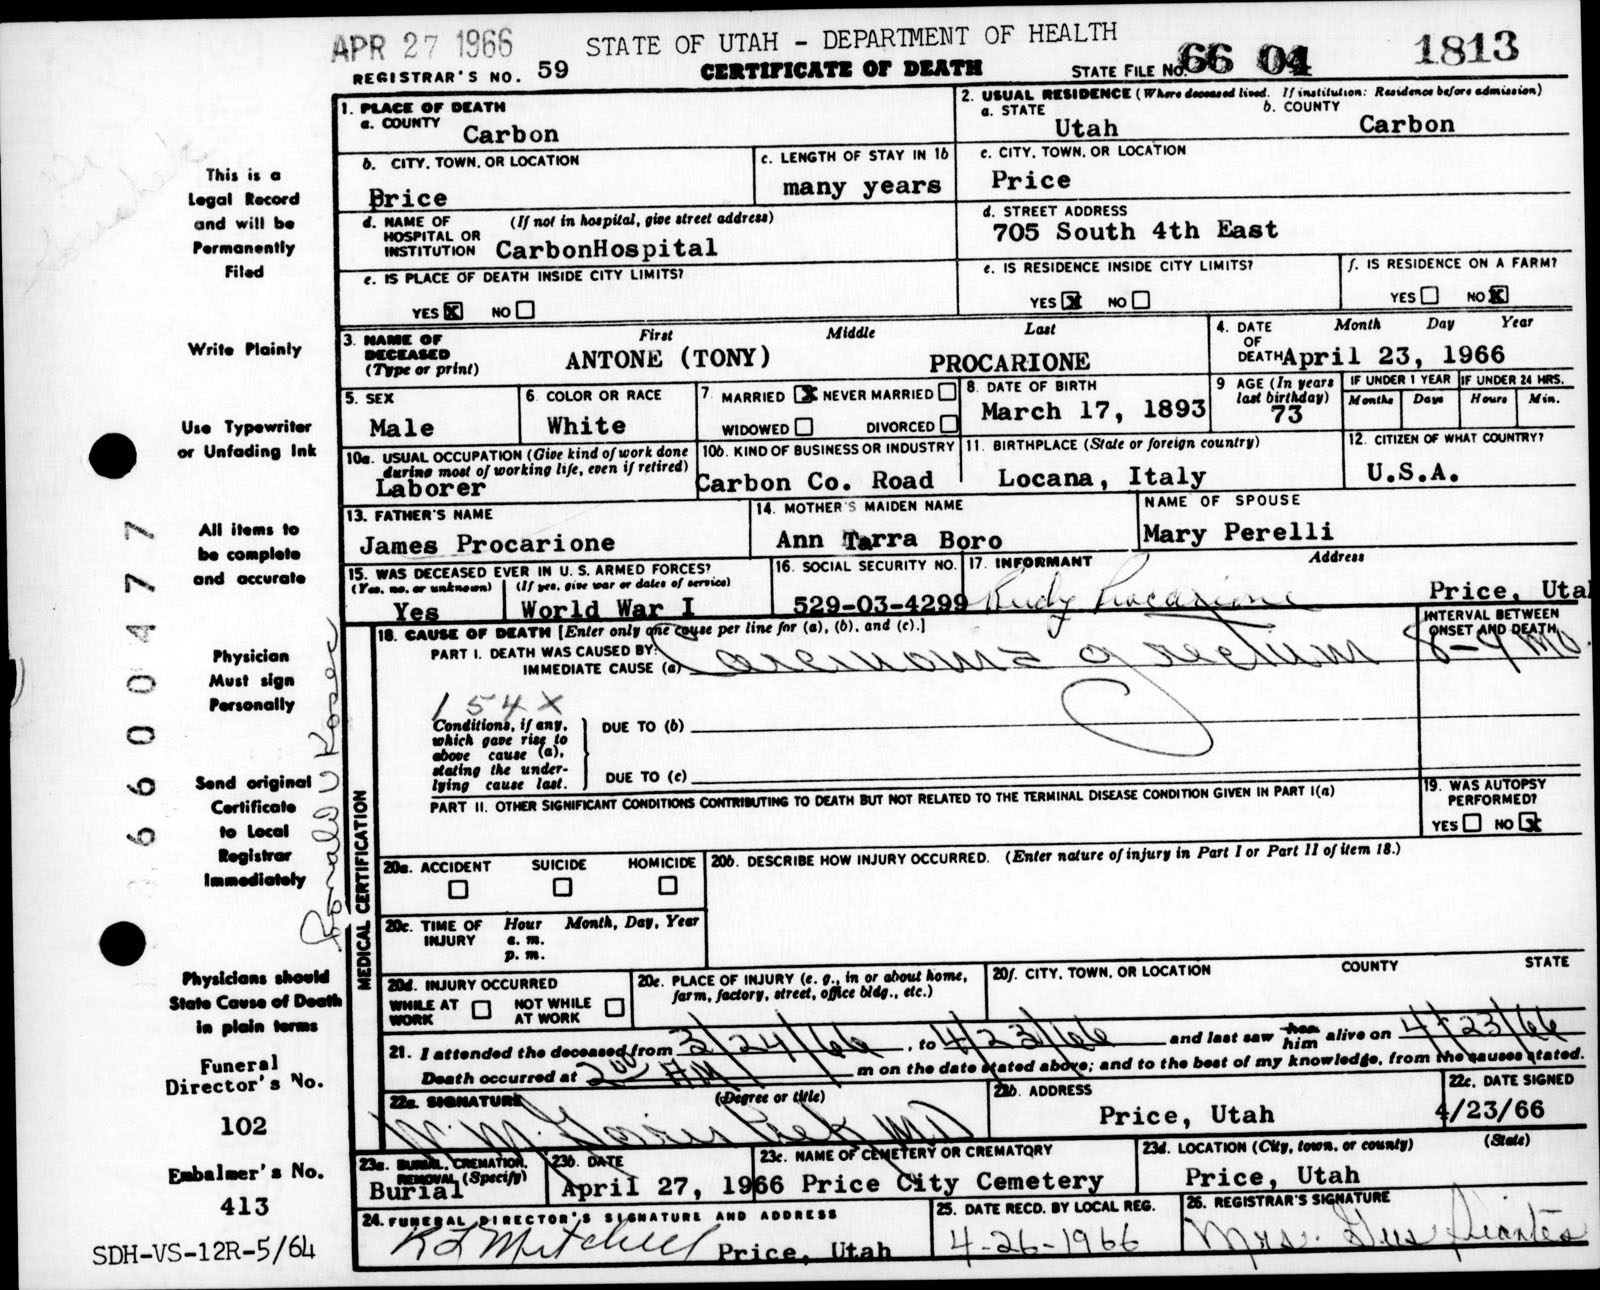 APR 27 1966 STATE OF UTAH - DEPARTMENT OF HEALTH
REGISTRAR'S NO. 59 CERTIFICATE OF DEATH STATE FILE NO. 66 04 1813
This is a
Legal Record
and will be
Permanently
Filed
Write Plainly
Use Typewriter
or Unfading Ink
All items to
be complete
and accurate
Physician
Must sign
Personally
Send original
Certificate
to Local
Registrar
Immediately
Physicians should
State Cause of Death
in plain terms
Funeral
Director's No.
102
Embalmer's No.
413
SDH-VS-12R-5/64
6600477
1. PLACE OF DEATH
a. COUNTY Carbon
2. USUAL RESIDENCE (Where deceased lived. If institution: Residence before admission)
a. STATE Utah b. COUNTY Carbon
b. CITY, TOWN, OR LOCATION Price
c. LENGTH OF STAY IN 1b many years
c. CITY, TOWN, OR LOCATION Price
d. NAME OF HOSPITAL OR INSTITUTION (If not in hospital, give street address) CarbonHospital
d. STREET ADDRESS 705 South 4th East
e. IS PLACE OF DEATH INSIDE CITY LIMITS? YES X NO
e. IS RESIDENCE INSIDE CITY LIMITS? YES X NO
f. IS RESIDENCE ON A FARM? YES NO X
3. NAME OF DECEASED (Type or print) First Middle Last
ANTONE (TONY) PROCARIONE
4. DATE OF DEATH Month Day Year April 23, 1966
5. SEX Male
6. COLOR OR RACE White
7. MARRIED X NEVER MARRIED WIDOWED DIVORCED
8. DATE OF BIRTH March 17, 1893
9 AGE (In years last birthday) 73
IF UNDER 1 YEAR Months Days
IF UNDER 24 HRS. Hours Min.
10a. USUAL OCCUPATION (Give kind of work done during most of working life, even if retired) Laborer
10b. KIND OF BUSINESS OR INDUSTRY Carbon Co. Road
11. BIRTHPLACE (State or foreign country) Locana, Italy
12. CITIZEN OF WHAT COUNTRY? U.S.A.
13. FATHER'S NAME James Procarione
14. MOTHER'S MAIDEN NAME Ann Tarra Boro
NAME OF SPOUSE Mary Perelli
15. WAS DECEASED EVER IN U. S. ARMED FORCES? (Yes, no, or unknown) Yes (If yes, give war or dates of service) World War I
16. SOCIAL SECURITY NO. 529-03-4299
17. INFORMANT Rudy Procarione Address Price, Utah
MEDICAL CERTIFICATION
18. CAUSE OF DEATH [Enter only one cause per line for (a), (b), and (c).]
INTERVAL BETWEEN ONSET AND DEATH
PART I. DEATH WAS CAUSED BY:
IMMEDIATE CAUSE (a) Carcinoma of rectum 8-9 mo.
154X
Conditions, if any, which gave rise to above cause (a), stating the underlying cause last.
DUE TO (b)
DUE TO (c)
PART II. OTHER SIGNIFICANT CONDITIONS CONTRIBUTING TO DEATH BUT NOT RELATED TO THE TERMINAL DISEASE CONDITION GIVEN IN PART I(a)
19. WAS AUTOPSY PERFORMED? YES NO X
20a. ACCIDENT SUICIDE HOMICIDE
20b. DESCRIBE HOW INJURY OCCURRED. (Enter nature of injury in Part I or Part II of item 18.)
20c. TIME OF INJURY Hour a. m. p. m. Month, Day, Year
20d. INJURY OCCURRED WHILE AT WORK NOT WHILE AT WORK
20e. PLACE OF INJURY (e. g., in or about home, farm, factory, street, office bldg., etc.)
20f. CITY, TOWN, OR LOCATION COUNTY STATE
21. I attended the deceased from 3/24/66, to 4/23/66 and last saw her him alive on 4/23/66
Death occurred at 2 00 AM m on the date stated above; and to the best of my knowledge, from the causes stated.
22a. SIGNATURE (Degree or title) MD
22b. ADDRESS Price, Utah
22c. DATE SIGNED 4/23/66
23a. BURIAL, CREMATION, REMOVAL (Specify) Burial
23b. DATE April 27, 1966
23c. NAME OF CEMETERY OR CREMATORY Price City Cemetery
23d. LOCATION (City, town, or county) (State) Price, Utah
24. FUNERAL DIRECTOR'S SIGNATURE AND ADDRESS Mitchell Price, Utah
25. DATE RECD. BY LOCAL REG. 4-26-1966
26. REGISTRAR'S SIGNATURE Mrs. Gus